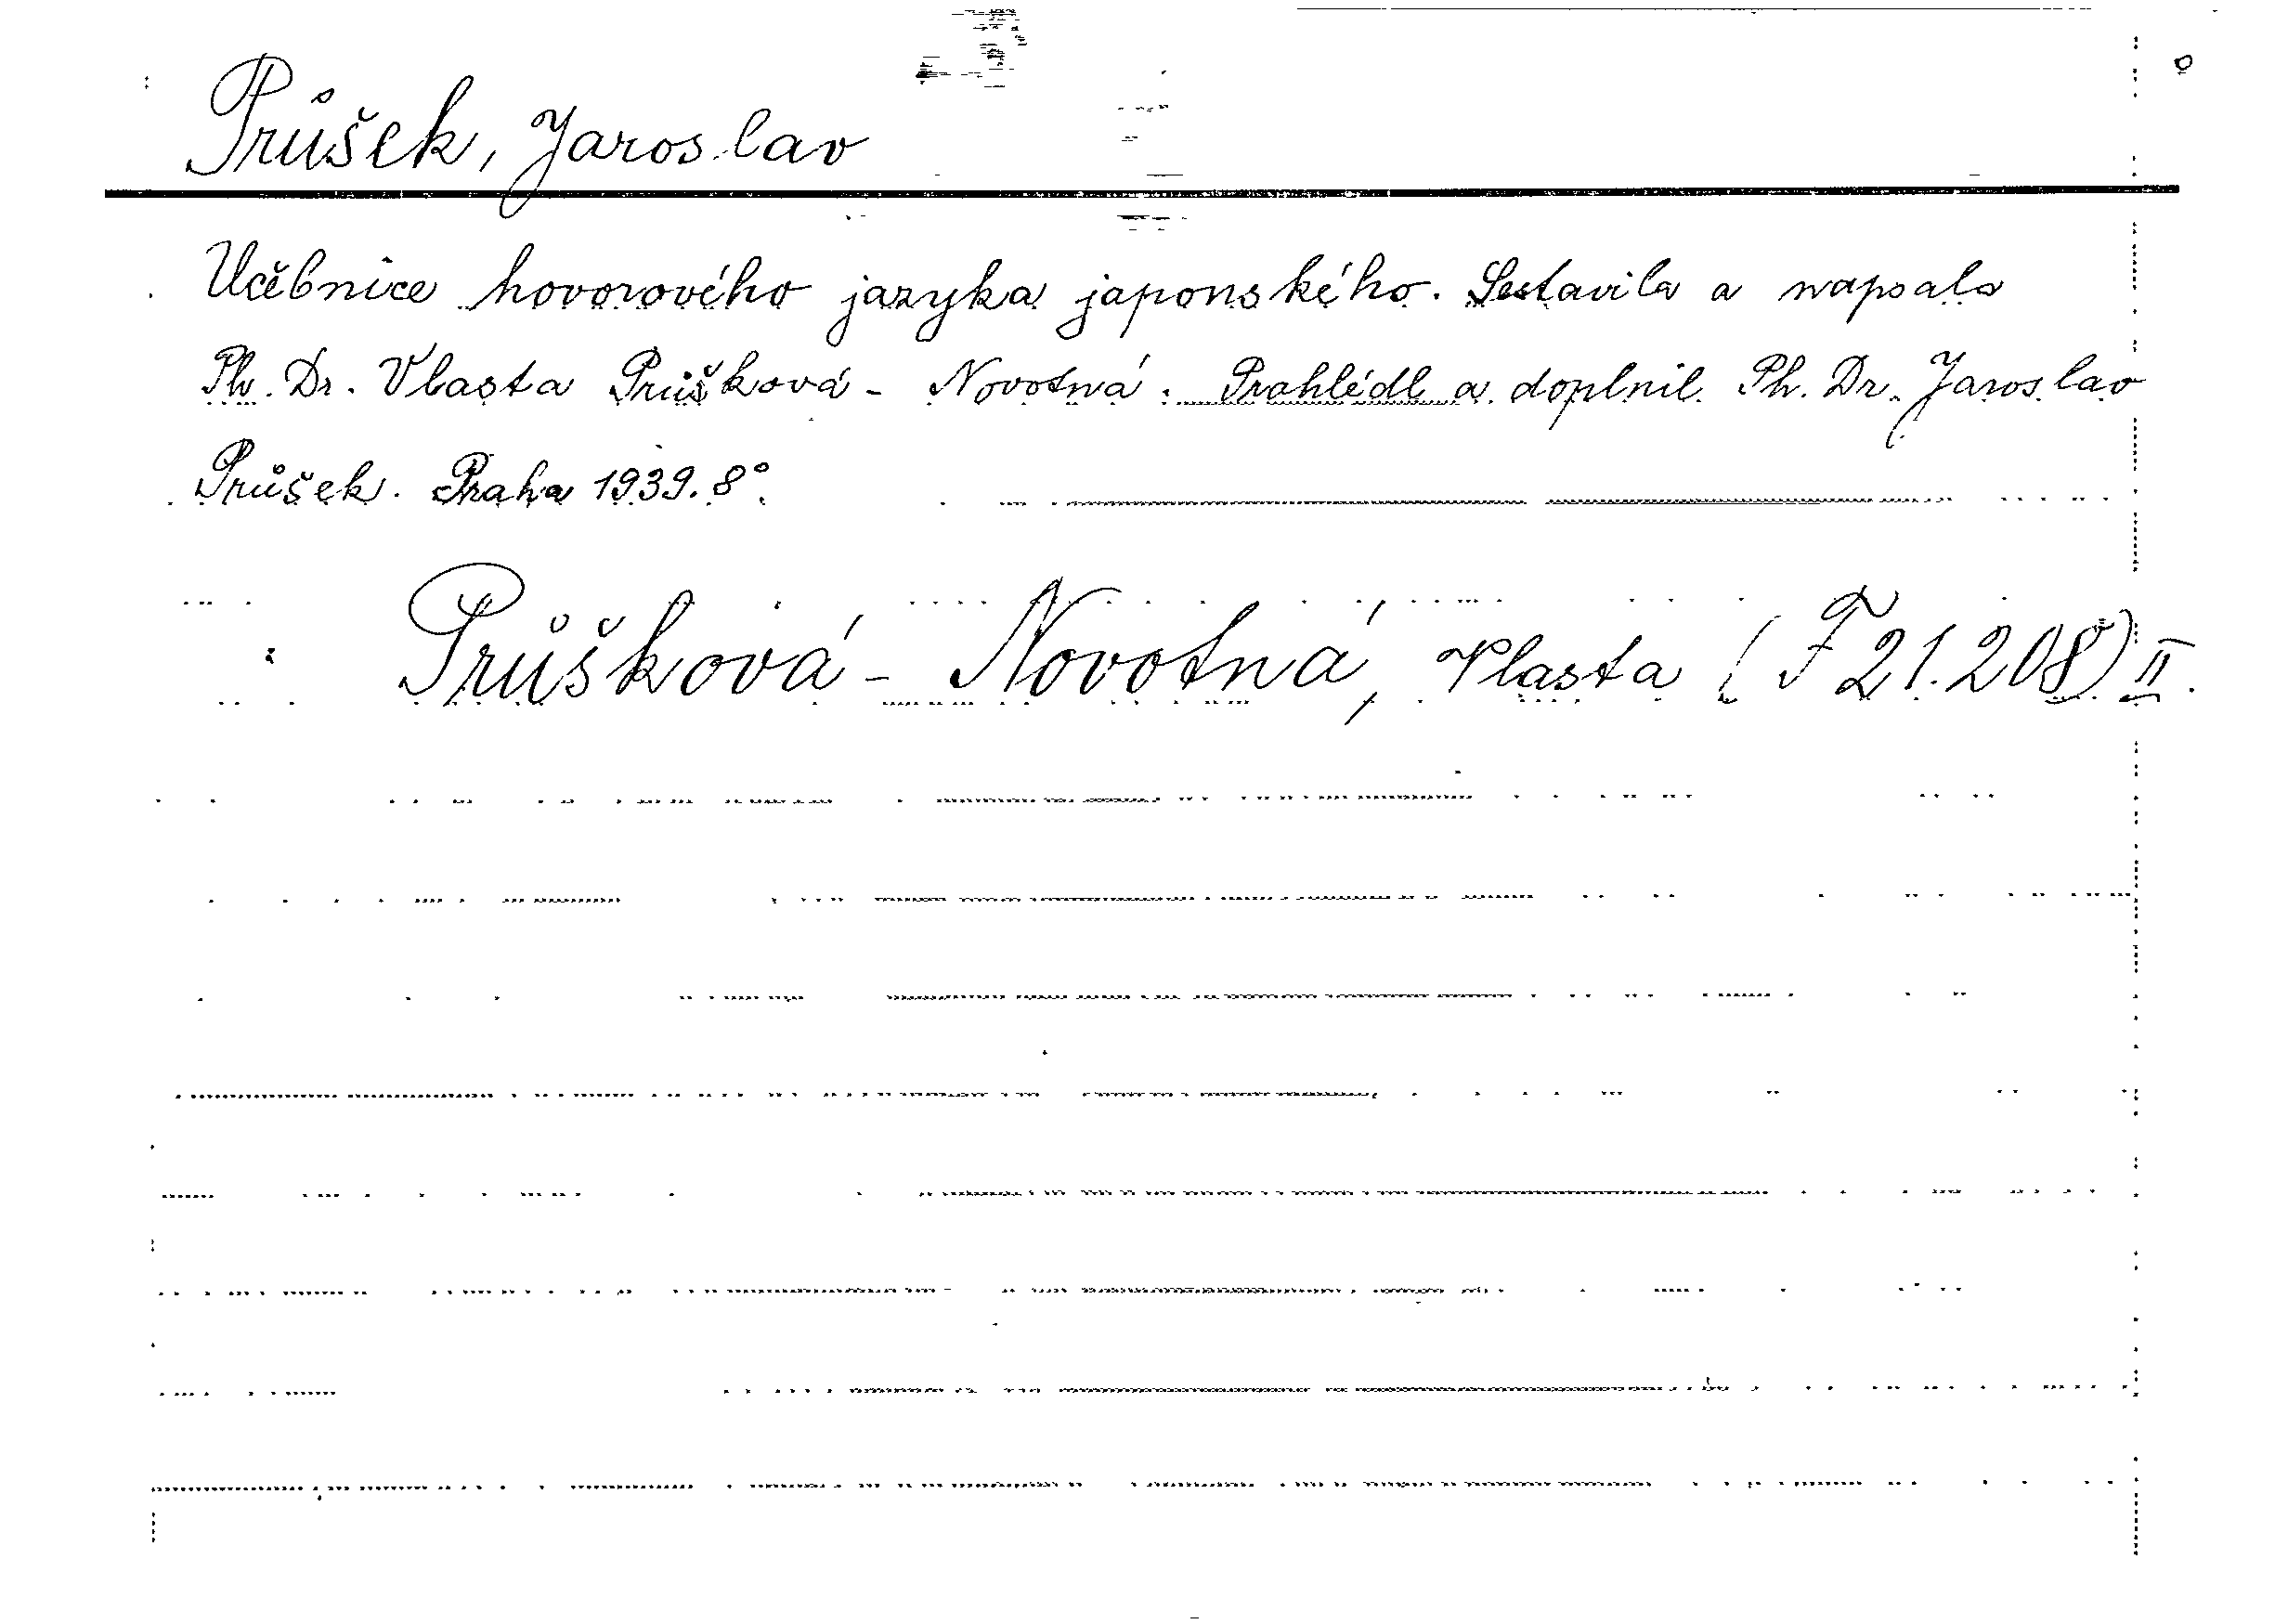 Průšek, Jaroslav
Učebnice hovorového jazyka japonského. Sestavila a napsala
Ph. Dr. Vlasta Průšková - Novotná. Prohlédl a doplnil Ph. Dr. Jaroslav
Průšek. Praha 1939. 8°.
Průšková - Novotná, Vlasta (F 21.208) II.